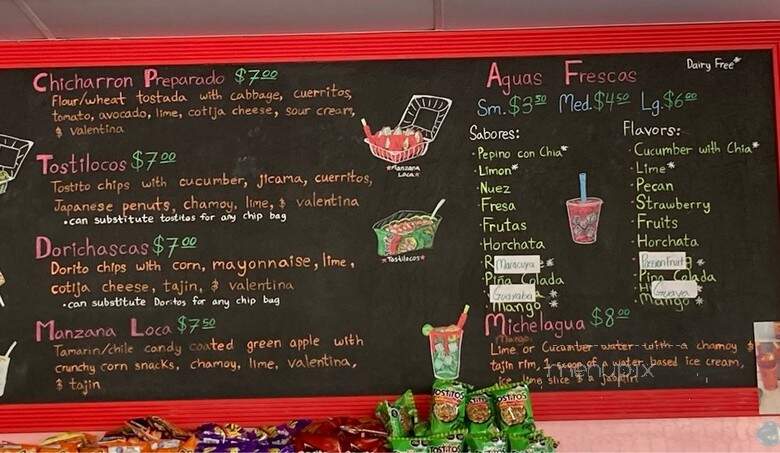 Chicharron Preparado $7.00
Flour/wheat tostada with cabbage, cuerritos,
tomato, avocado, lime, cotija cheese, sour cream,
$ valentina
Tostilocos $7.00
Tostito chips with cucumber, jicama, cuerritos,
Japanese penuts, chamoy, lime, $ valentina
• can substitute tostitos for any chip bag
Dorichascas $7.00
Dorito chips with corn, mayonnaise, lime,
cotija cheese, tajin, $ valentina
• can substitute Doritos for any chip bag
Manzana Loca $7.50
Tamarin/chile candy coated green apple with
crunchy corn snacks, chamoy, lime, valentina,
$ tajin
*Manzana
Loca*
*Tostilocos*
Dairy Free*
Aguas Frescas
Sm. $3.50 Med. $4.50 Lg. $6.00
Sabores:
· Pepino con Chia*
· Limon*
· Nuez
· Fresa
· Frutas
· Horchata
Maracuya *
· Piña Colada
Guanaba *
· Mango *
Flavors:
· Cucumber with Chia*
· Lime*
· Pecan
· Strawberry
· Fruits
· Horchata
Passionfruit *
· Pina Colada
Guaya *
· Mango *
Michelagua $8.00
Mango,
Lime or Cucumber water with a chamoy $
tajin rim, 1 scoop of a water based ice cream,
menupix
TOSTITOS
TOSTITOS
TOSTITOS